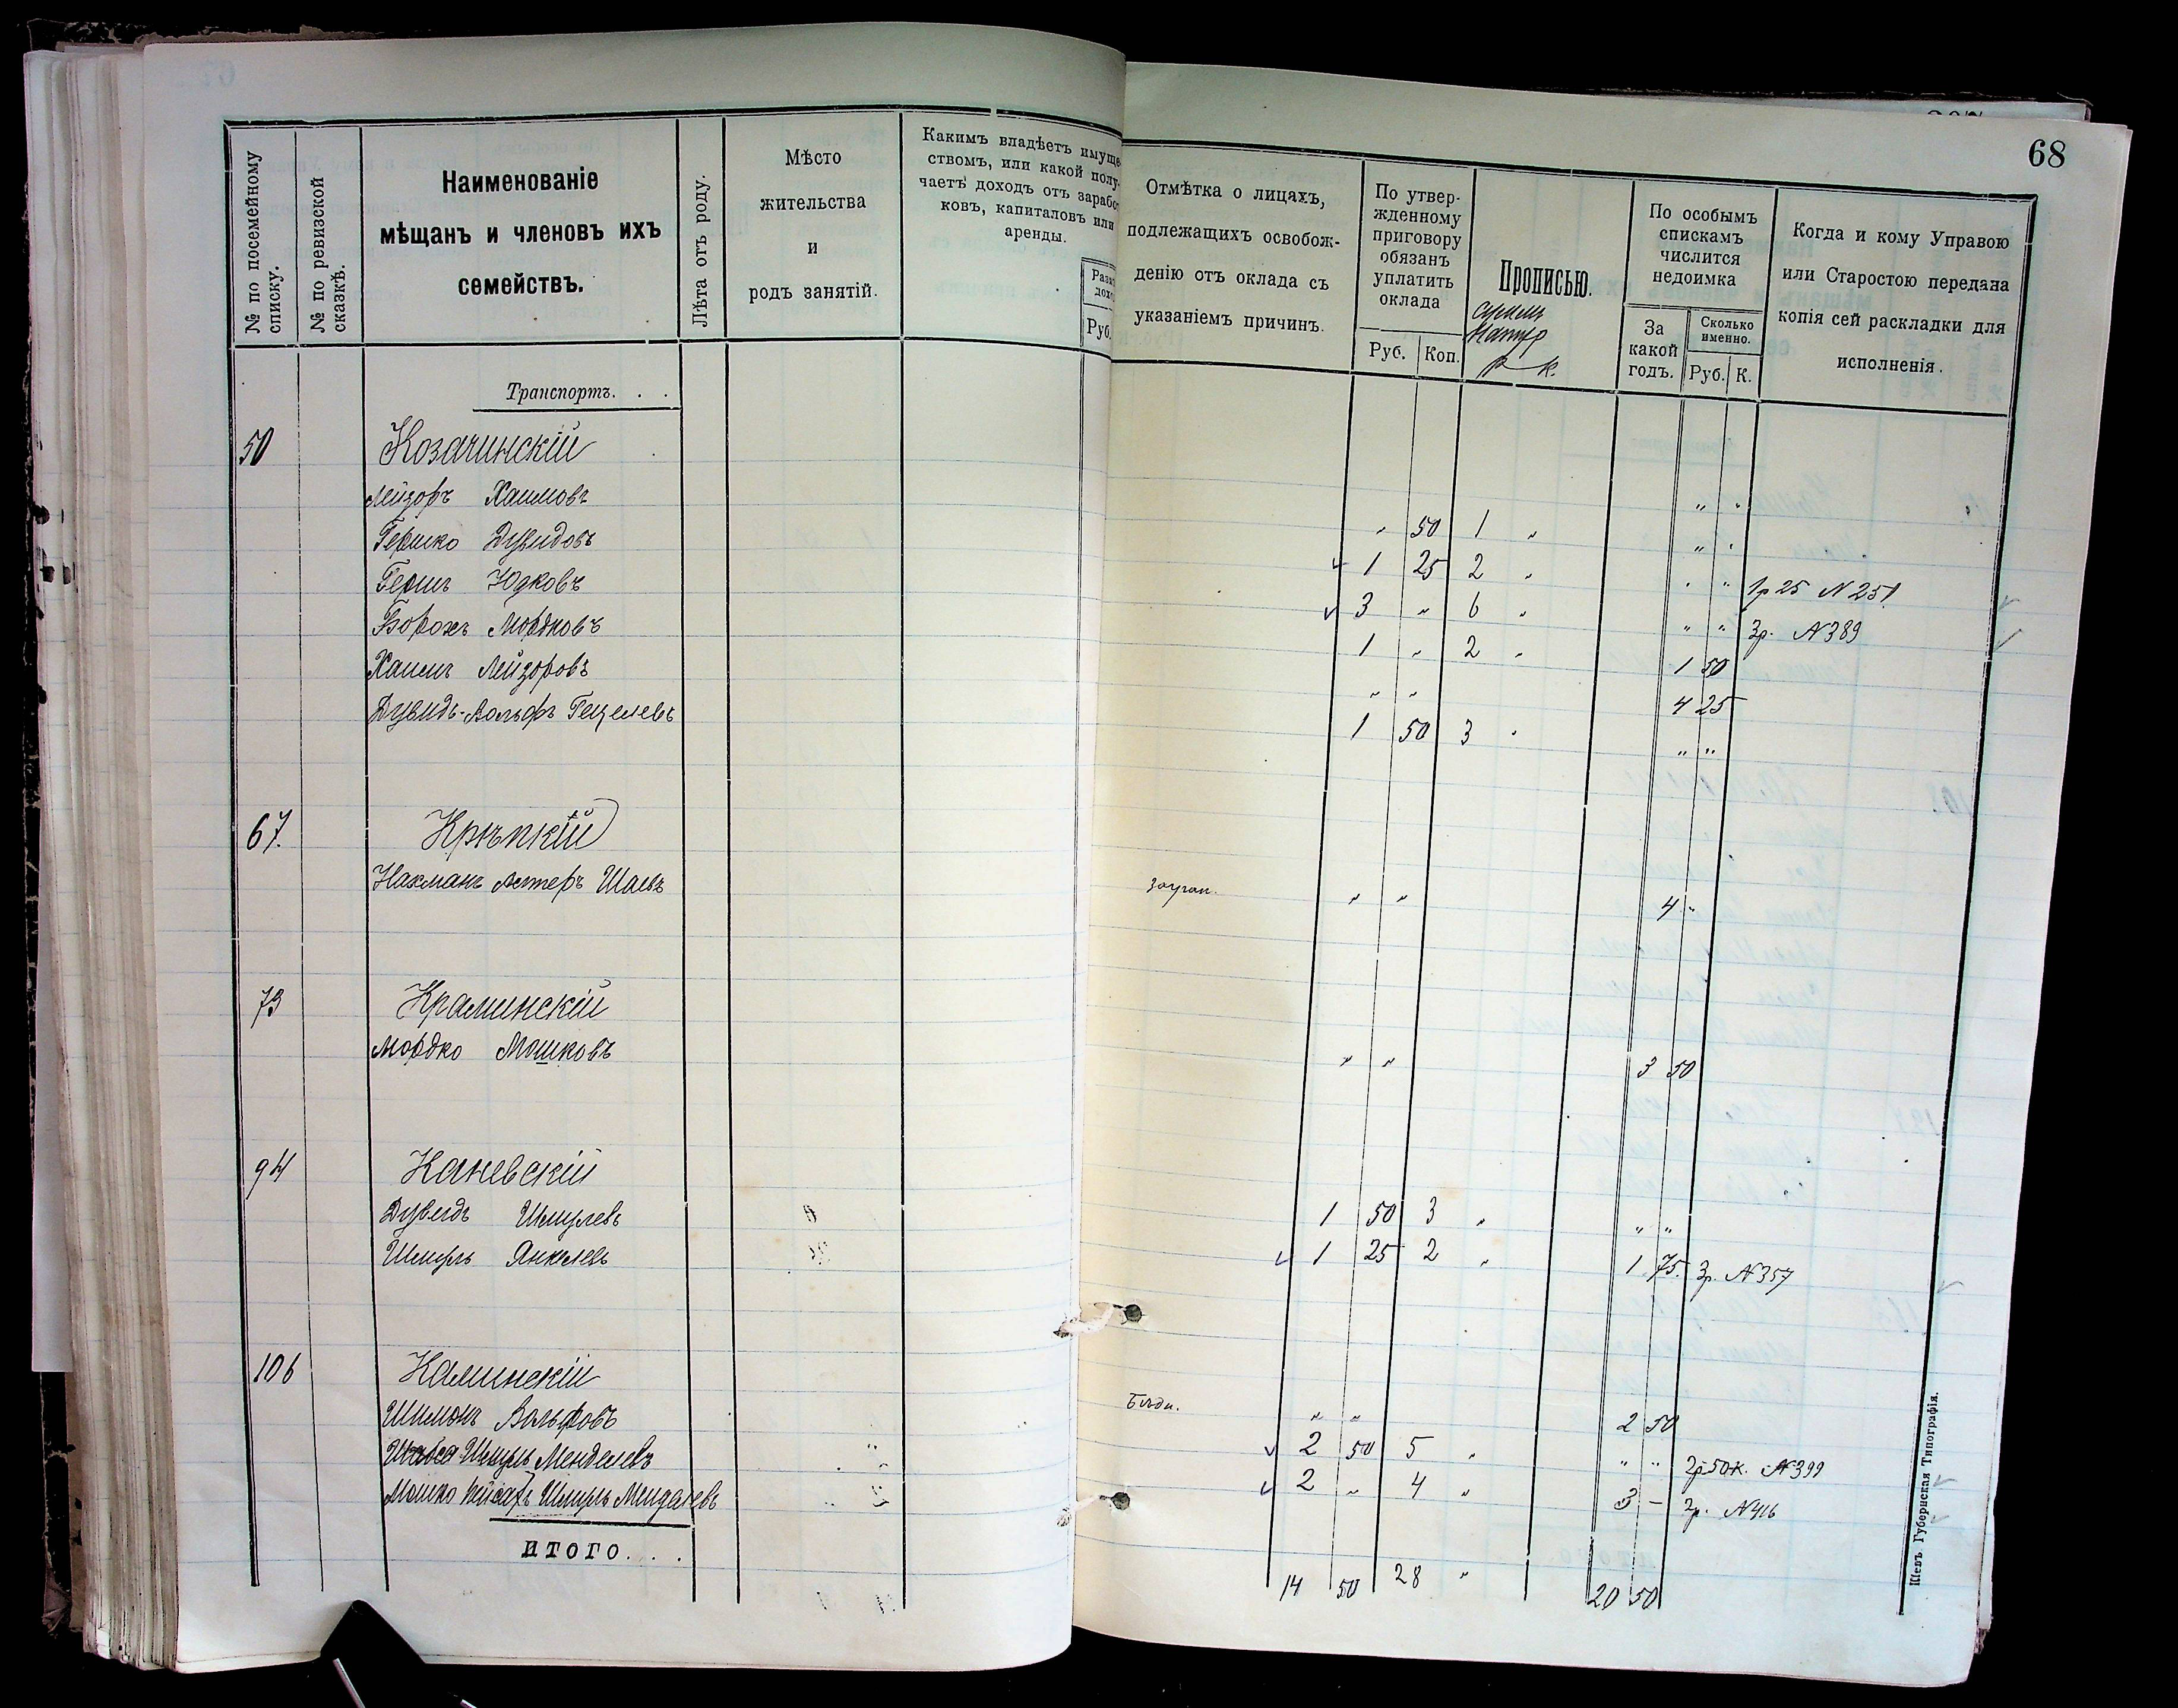 68
№ по посемейному списку.
№ по ревизской сказкѣ.
Наименованіе
мѣщанъ и членовъ ихъ
семействъ.
Лѣта отъ роду.
Мѣсто
жительства
и
родъ занятій.
Какимъ владѣетъ имуще-
ствомъ, или какой полу-
чаетъ доходъ отъ зарабо-
ковъ, капиталовъ или
аренды.
Руб.
Отмѣтка о лицахъ,
подлежащихъ освобож-
денію отъ оклада съ
указаніемъ причинъ.
По утвер-
жденному
приговору
обязанъ
уплатить
оклада
Руб. Коп.
Прописью.
р к.
По особымъ
спискамъ
числится
недоимка
За
какой
годъ.
Сколько
именно.
Руб. К.
Когда и кому Управою
или Старостою передана
копія сей раскладки для
исполненія.
Транспортъ. . .
50 Козачинскій
Лейзоръ Хаимовъ " 50 1 " " "
Гершко Дувидовъ 1 25 2 " " "
Гершъ Юдковъ 3 " 6 " " " 1р 25 N 251
Борохъ Мордковъ 1 " 2 " " " 3р. N 389
Хаимъ Лейзоровъ " " 1 50
Дувидъ-Вольфъ Гецелевъ 1 50 3 " 4 25
" "
67. Крѣпкій
Нахманъ Лейзеръ Шаевъ " " 4 "
73 Краминскій
Мордко Мошковъ " " 3 50
94 Каневскій
Дувидъ Шмулевъ 1 50 3 " " "
Шмуль Янкелевъ 1 25 2 " 1 75. 3р. N 357
106 Калинскій
Шимонъ Вольфовъ Бѣдн. " " 2 50
Шмуль Менделевъ 2 50 5 " " " 2р 50к. N 399
Мошко Шмуль Менделевъ 2 " 4 " 3 — 2р. N 416
ИТОГО. . . . 14 50 28 " 20 50
Кіевъ Губернская Типографія.